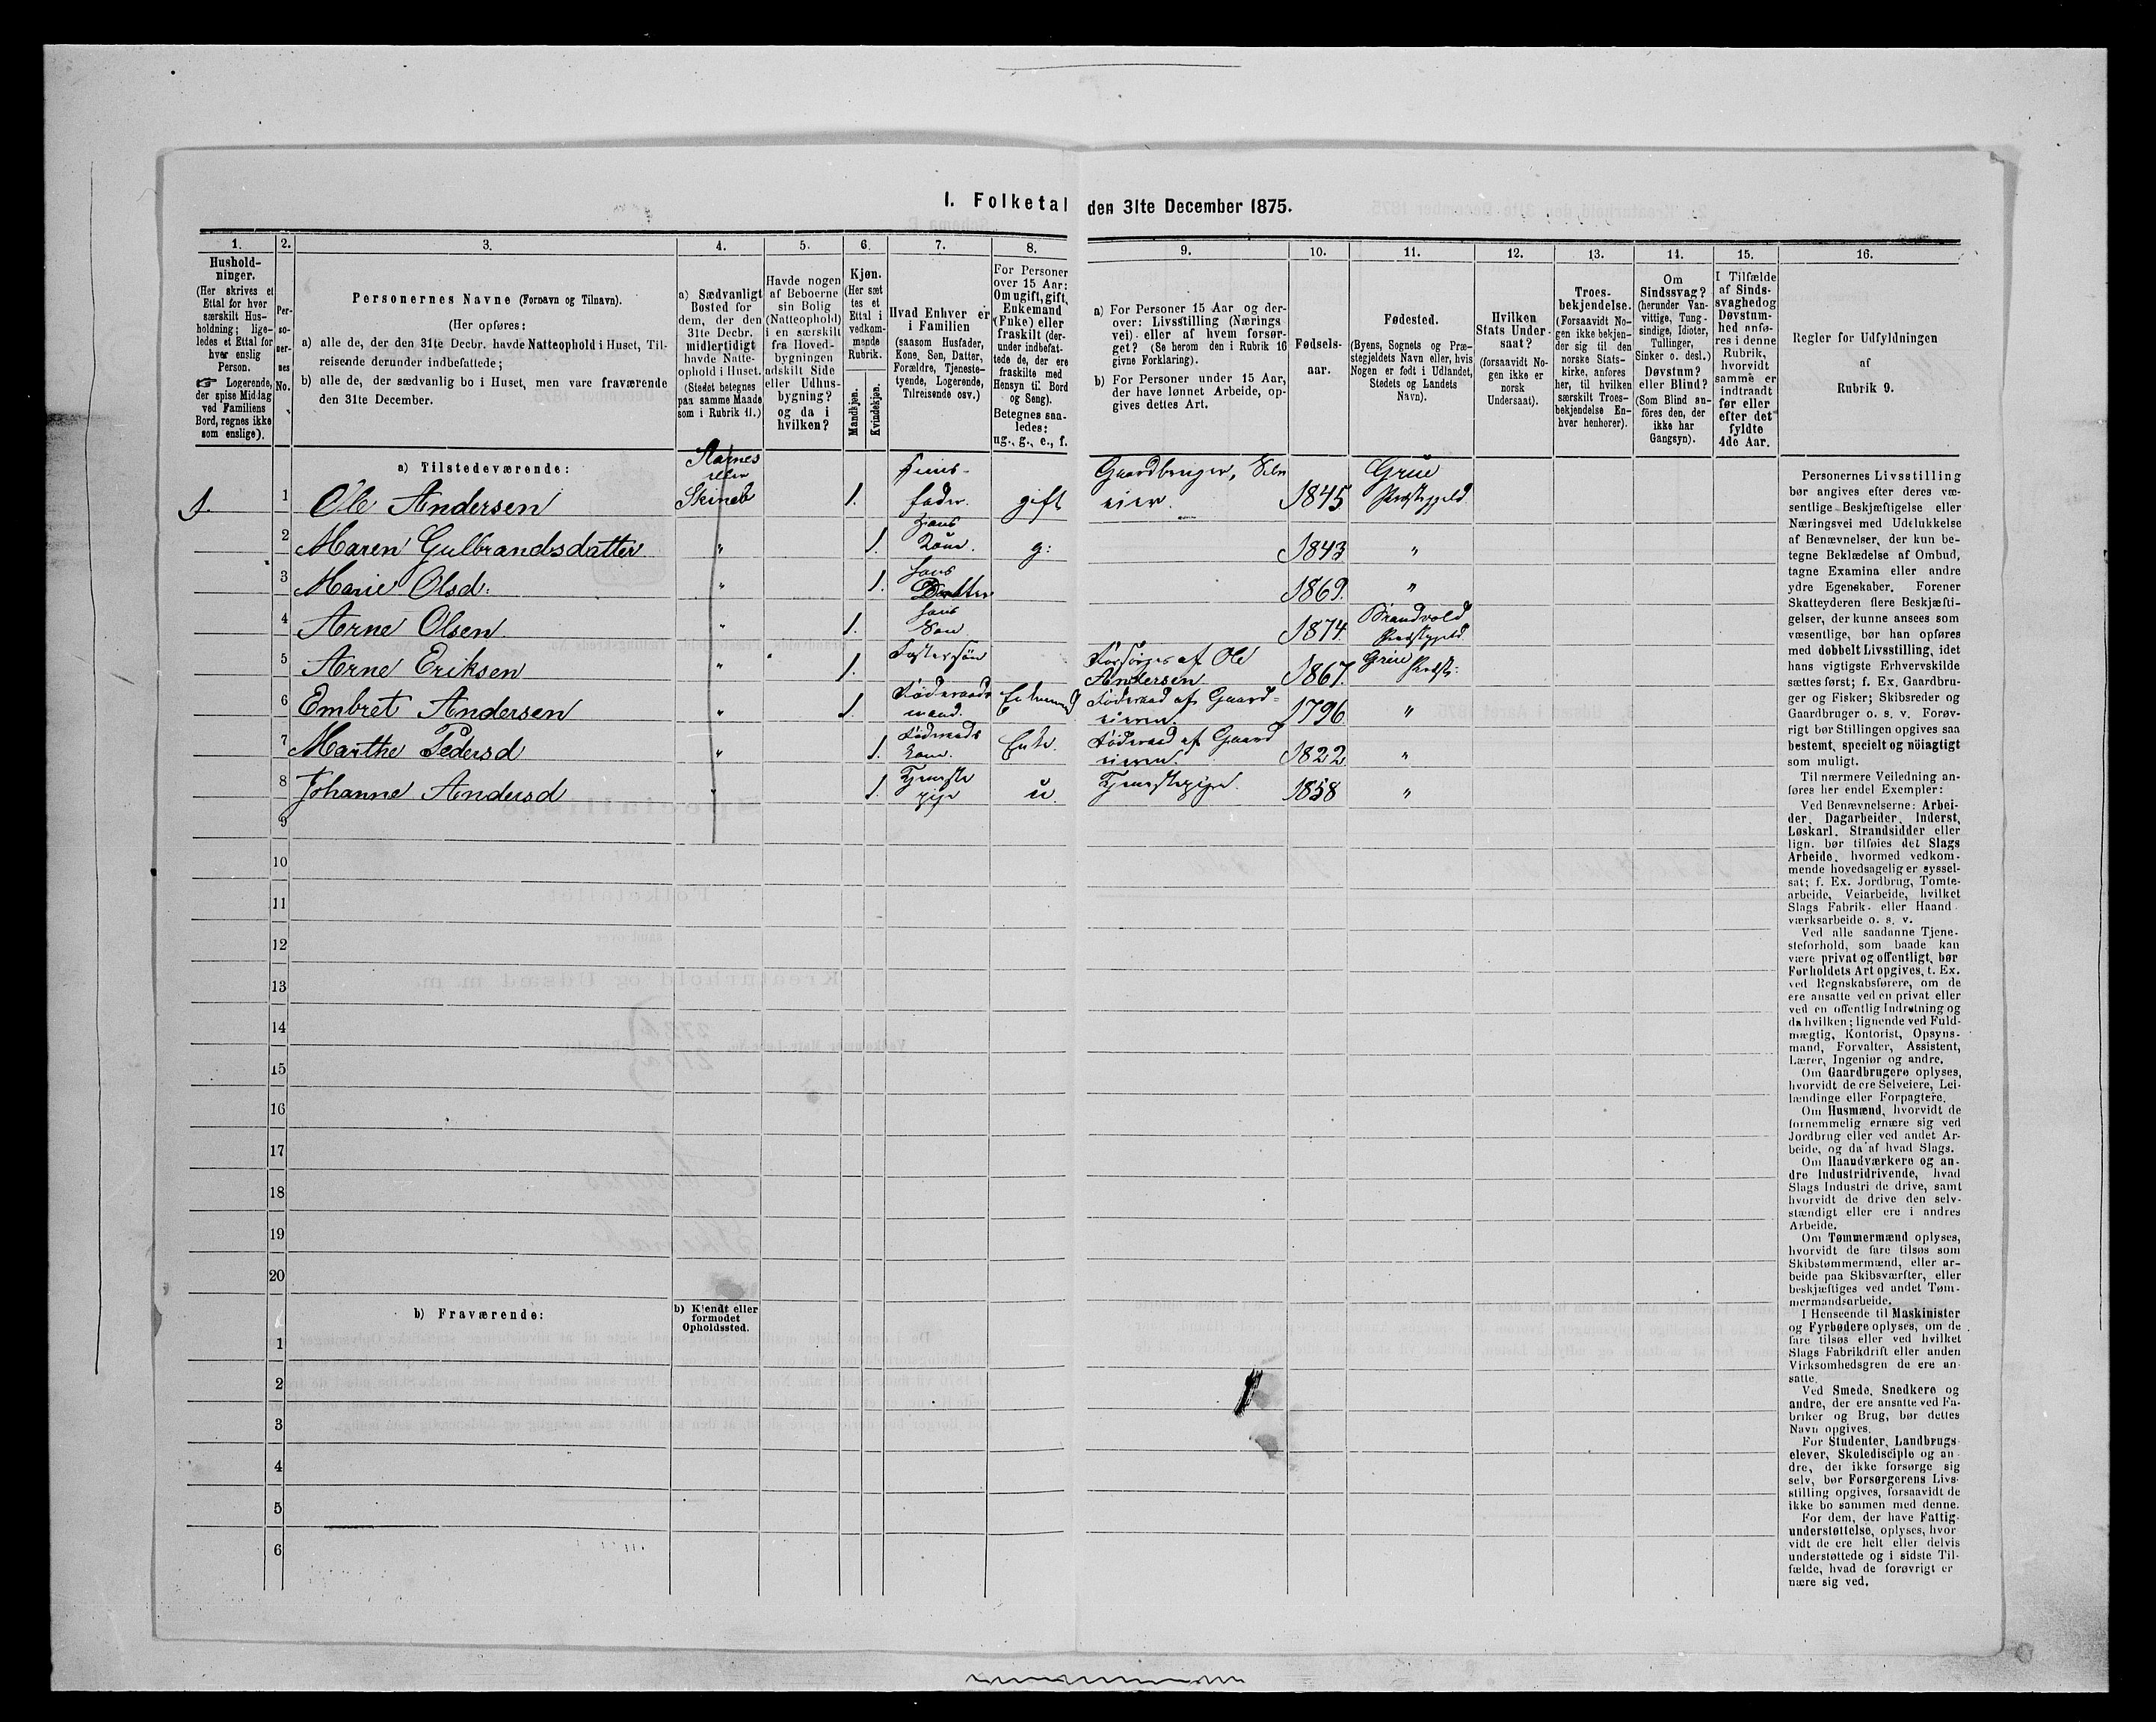 I. Folketal den 31te December 1875.
1. 2. 3. 4. 5. 6. 7. 8. 9. 10. 11. 12. 13. 14. 15. 16.
Hushold-
ninger.
(Her skrives et
Ettal for hver
særskilt Hus-
holdning; lige-
ledes et Ettal for
hver enslig
Person.
☞ Logerende,
der spise Middag
ved Familiens
Bord, regnes ikke
som enslige).
Per-
so-
ner-
nes
No.
Personernes Navne (Fornavn og Tilnavn).
(Her opføres:
a) alle de, der den 31te Decbr. havde Natteophold i Huset, Til-
reisende derunder indbefattede;
b) alle de, der sædvanlig bo i Huset, men vare fraværende
den 31te December.
a) Sædvanligt
Bosted for
dem, der den
31te Decbr.
midlertidigt
havde Natte-
ophold i Huset.
(Stedet betegnes
paa samme Maade
som i Rubrik 11.)
Havde nogen
af Beboerne
sin Bolig
(Natteophold)
i en særskilt
fra Hoved-
bygningen
adskilt Side
eller Udhus-
bygning?
og da i
hvilken?
Kjøn.
(Her sæt
tes et
Ettal i
vedkom-
mende
Rubrik.
Mandkjøn.
Kvindekjøn.
Hvad Enhver er
i Familien
(saasom Husfader,
Kone, Søn, Datter,
Forældre, Tjeneste-
tyende, Logerende,
Tilreisende osv.)
For Personer
over 15 Aar:
Om ugift, gift,
Enkemand
(Enke) eller
fraskilt (der-
under indbefat-
tede de, der ere
fraskilte med
Hensyn til Bord
og Seng).
Betegnes saa-
ledes:
ug., g., e., f.
a) For Personer 15 Aar og der-
over: Livsstilling (Nærings
vei) eller af hvem forsør-
get? (Se herom den i Rubrik 16
givne Forklaring).
b) For Personer under 15 Aar,
der have lønnet Arbeide, op-
gives dettes Art.
Fødsels-
aar.
Fødested.
(Byens, Sognets og Præ-
stegjeldets Navn eller, hvis
Nogen er født i Udlandet,
Stedets og Landets
Navn).
Hvilken
Stats Under-
saat?
(forsaavidt No-
gen ikke er
norsk
Undersaat).
Troes-
bekjendelse.
(Forsaavidt No-
gen ikke bekjen-
der sig til den
norske Stats-
kirke, anføres
her, til hvilken
særskilt Troes-
bekjendelse En-
hver henhører).
Om
Sindssvag?
(herunder Van-
vittige, Tung-
sindige, Idioter,
Tullinger,
Sinker o. desl.)
Døvstum?
eller Blind?
(Som Blind an-
föres den, der
ikke har
Gangsyn).
I Tilfælde
af Sinds-
svaghed og
Døvstum-
hed anfø-
res i denne
Rubrik,
hvorvidt
samme er
indtraadt
før eller
efter det
fyldte
4de Aar.
Regler for Udfyldningen
af
Rubrik 9.
a) Tilstedeværende:
1. 1 Ole Andersen Aarnes Skinab 1. Huus-fader. gift Gaardbruger, Selveier. 1845 Grue Præstegjeld
2 Maren Gulbrandsdatter " 1. Hans Kone. g: 1843 "
3 Marie Olsd: " 1. Hans Datter 1869. "
4 Arne Olsen " 1. Hans Søn 1874 Brandvold Præstegjeld
5 Arne Eriksen " 1. Fostersøn Forsørges af Ole Andersen 1867. Grue Præst:
6 Embret Andersen " 1. Föderaads mand. Enkemand Föderaad af Gaardeieren. 1796 "
7 Marthe Pedersd " 1. Föderaads Kone. Enke. Föderaad af Gaardeieren. 1822 "
8 Johanne Andersd " 1. Tjenste pige u. Tjenstepige. 1858 "
9
10
11
12
13
14
15
16
17
18
19
20
b) Fraværende:
b) Kjendt eller
formodet
Opholdssted.
1
2
3
4
5
6
Personernes Livsstilling
bør angives efter deres væ-
sentlige Beskjæftigelse eller
Næringsvei med Udelukkelse
af Benævnelser, der kun be-
tegne Beklædelse af Ombud,
tagne Examina eller andre
ydre Egenskaber. Forener
Skatteyderen flere Beskjæfti-
gelser, der kunne ansees som
væsentlige, bør han opføres
med dobbelt Livsstilling, idet
hans vigtigste Erhvervskilde
sættes først; f. Ex. Gaardbru-
ger og Fisker; Skibsreder og
Gaardbruger o. s. v. Forøv-
rigt bør Stillingen opgives saa
bestemt, specielt og nöiagtigt
som muligt.
Til nærmere Veiledning an-
føres her endel Exempler:
Ved Benævnelserne: Arbei-
der, Dagarbeider, Inderst,
Løskarl, Strandsidder eller
lign. bør tilføies det Slags
Arbeide, hvormed vedkom-
mende hovedsagelig er syssel-
sat; f. Ex. Jordbrug, Tomte-
arbeide, Veiarbeide, hvilket
Slags Fabrik- eller Haand-
værksarbeide o. s. v.
Ved alle saadanne Tjene-
steforhold, som baade kan
være privat og offentligt, bør
Forholdets Art opgives, t. Ex.
ved Regnskabsførere, om de
ere ansatte ved en privat eller
ved en offentlig Indretning og
da hvilken; lignende ved Fuld-
mægtig, Kontorist, Opsyns-
mand, Forvalter, Assistent,
Lærer, Ingeniør og andre.
Om Gaardbrugere oplyses,
hvorvidt de ere Selveiere, Lei-
lændinge eller Forpagtere.
Om Husmænd, hvorvidt de
fornemmelig ernære sig ved
Jordbrug eller ved andet Ar-
beide, og da af hvad Slags.
Om Haandværkere og an-
dre Industridrivende, hvad
Slags Industri de drive, samt
hvorvidt de drive den selv-
stændigt eller ere i andres
Arbeide.
Om Tømmermænd oplyses,
hvorvidt de fare tilsøs som
Skibstømmermænd, eller ar-
beide paa Skibsværfter, eller
beskjæftiges ved andet Tøm-
mermandsarbeide.
I Henseende til Maskinister
og Fyrbødere oplyses, om de
fare tilsøs eller ved hvilket
Slags Fabrikdrift eller anden
Virksomhedsgren de ere an-
satte.
Ved Smede, Snedkere og
andre, der ere ansatte ved Fa-
briker og Brug, bør dettes
Navn opgives.
For Studenter, Landbrugs-
elever, Skoledisciple og an-
dre, der ikke forsørge sig
selv, bør Forsørgerens Livs-
stilling opgives, forsaavidt de
ikke bo sammen med denne.
For dem, der have Fattig-
understøttelse, oplyses, hvor-
vidt de ere helt eller delvis
understøttede og i sidste Til-
fælde, hvad de forøvrigt er-
nære sig ved.